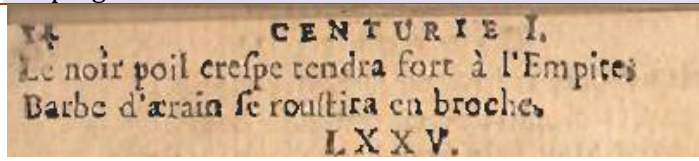 14 CENTURIE I.
Le noir poil creſpe tendra fort à l'Empire;
Barbe d'ærain ſe rouſtira en broche.
LXXV.